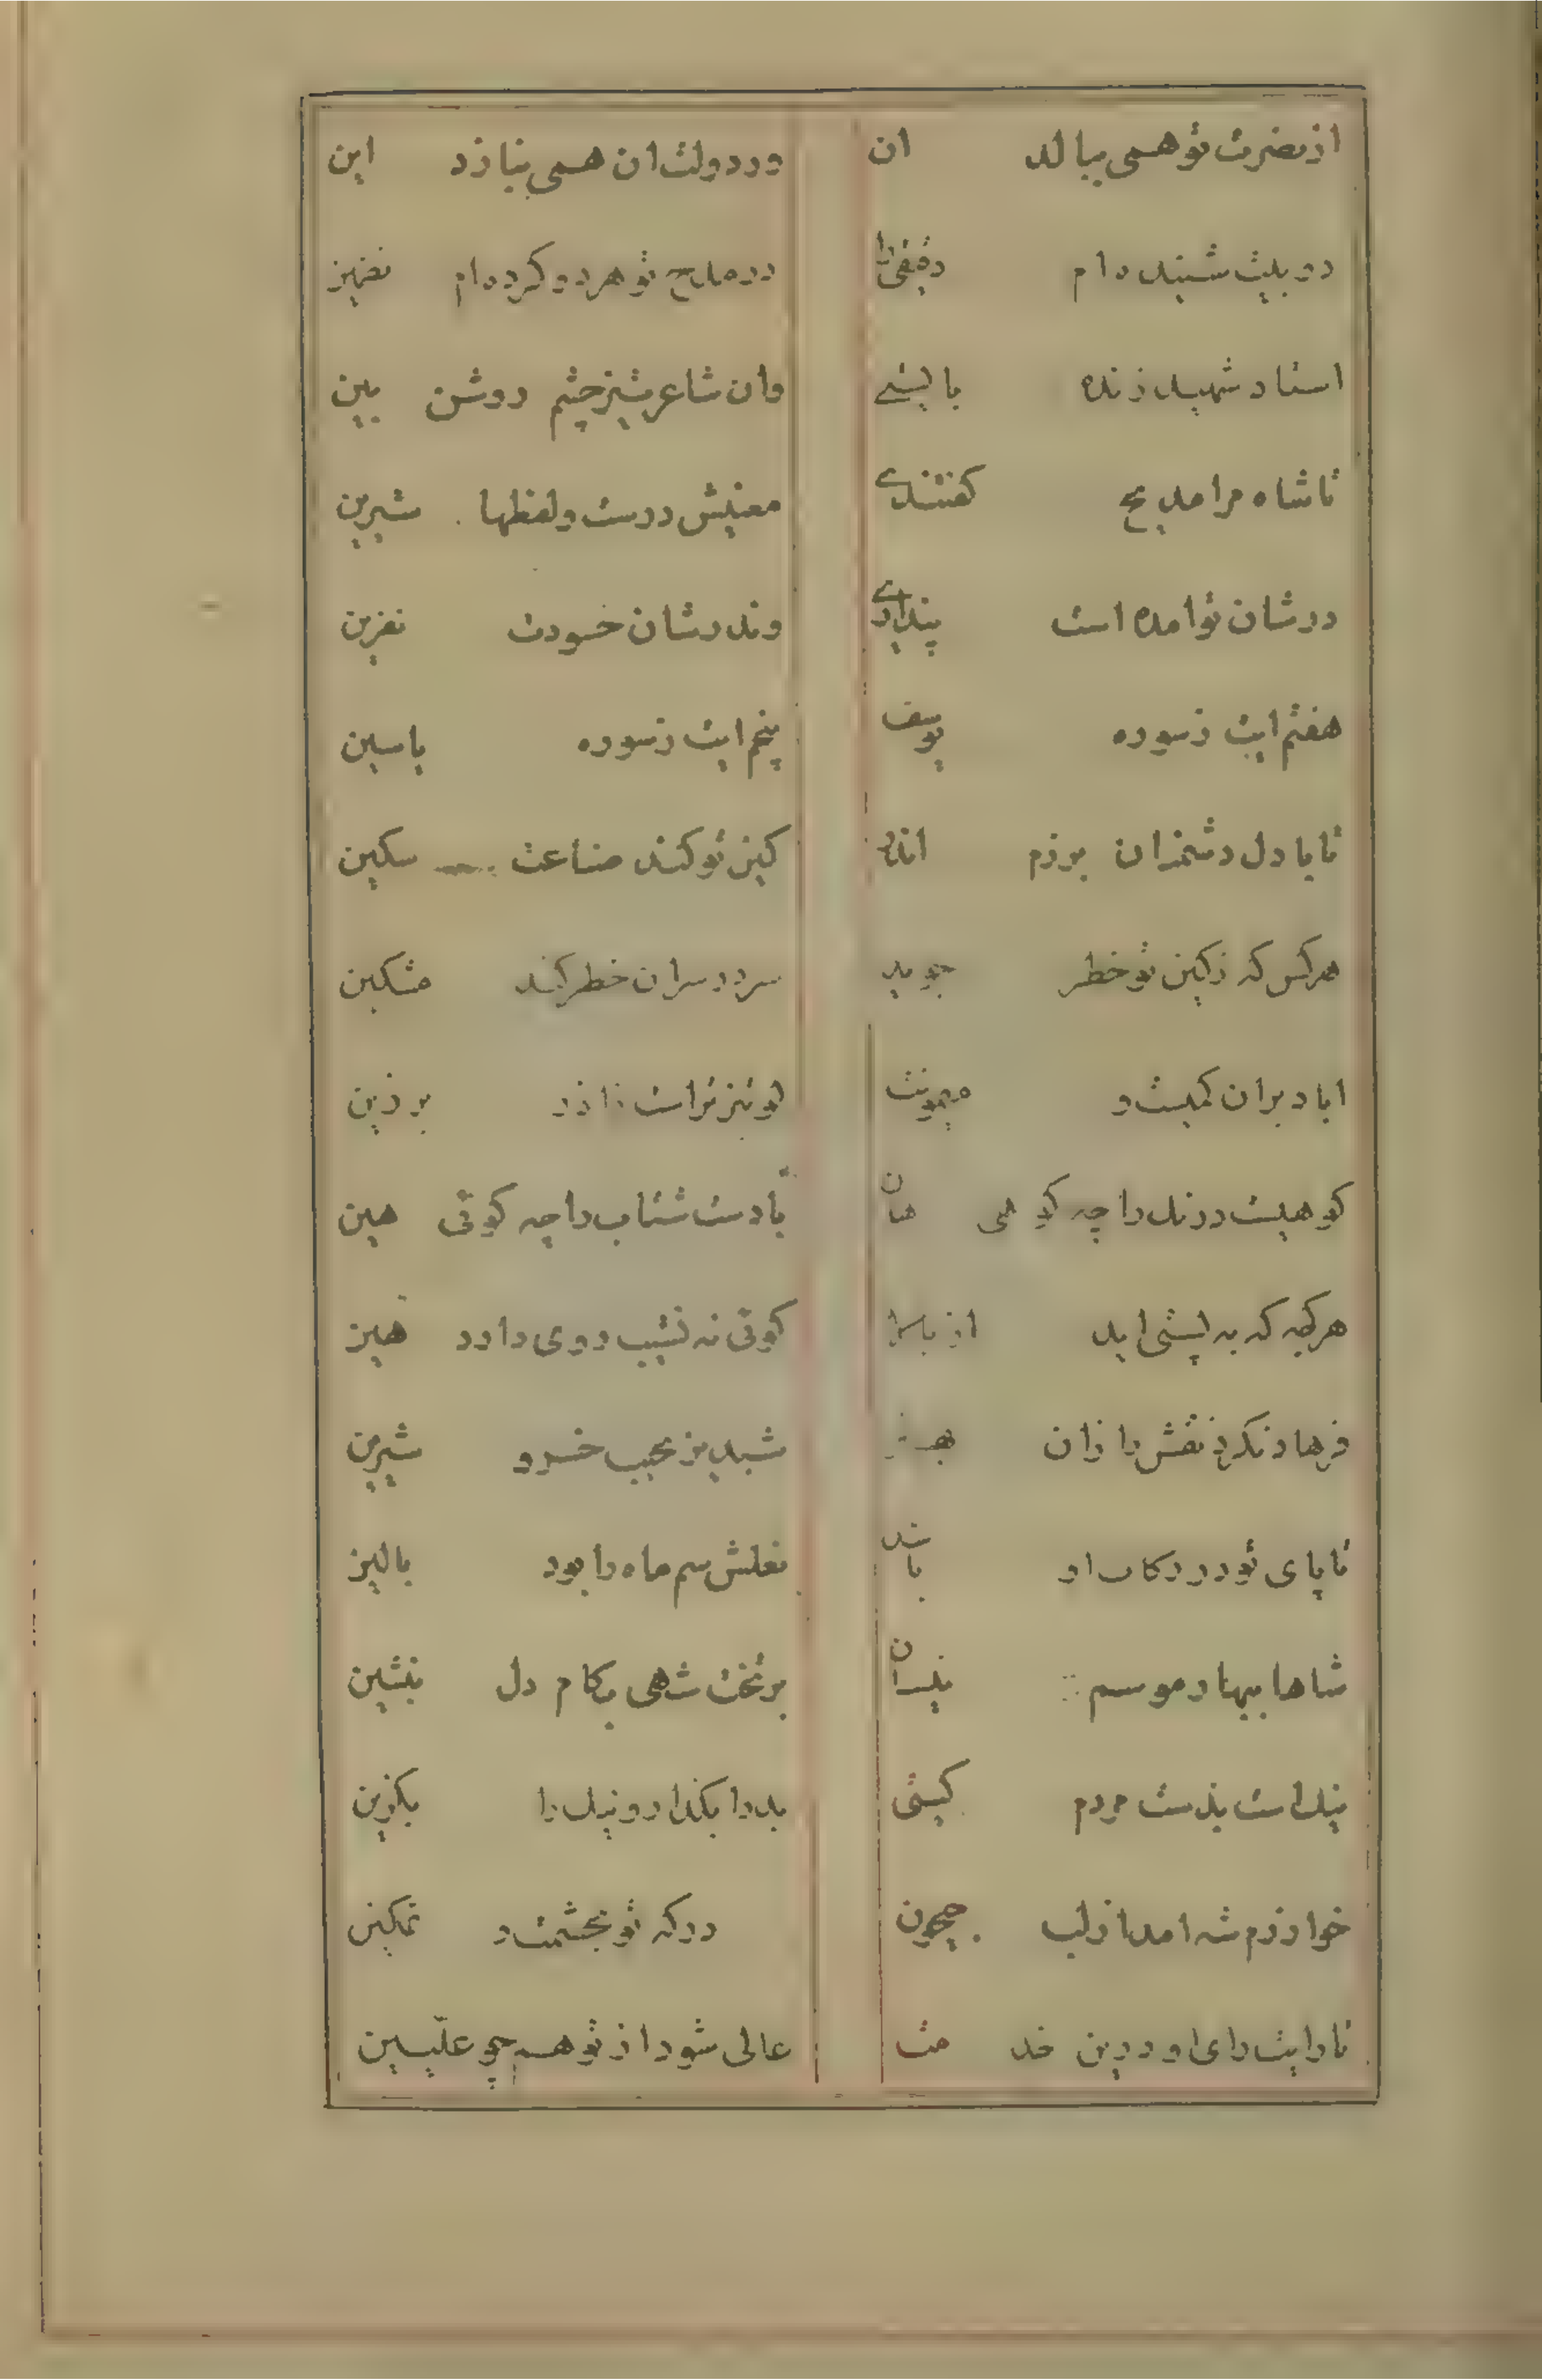 از نصرت تو همی ببالد ان
وز دولت ان همی بنازد این
دو بیت شنیده‌ام دقیقی را
در مدح تو هر دو کرده‌ام تضمین
استاد شهید زنده بایستی
وان شاعر تیز چشم روشن بین
تا شاه مرا مدیح گفتندی
معنیش درست و لفظها شیرین
در شان تو امده است پنداری
وندر شان حسودت نفرین
هفتم ایت ز سوره یوسف
پنجم ایت ز سوره یاسین
تا با دل دشمنان برزم اندر
کین تو کند صناعت سکین
هرکس که ز کین تو خطر جوید
سر در سران خطر کند مشکین
اباد بران کمیت میمونت
در زین
کوهیست درنک را چه کوهی هان
بادست شتاب را چه کوئی هین
هرگه که به پستی اید از بالا
کوئی نه نشیب روی دارد هین
فرهاد نکرد نقش را زان
شبدیز نجیب خسرو شیرین
تا پای تو در رکاب او باشد
نعلش سم ماه را بود بالین
شاها ببهار موسم نیسان
بر تخت شهی بکام دل بنشین
نیک است بدست مردم کیتی
بد را بگذار و نیک را بگزین
خوارزم شه امد از لب جیحون
در که تو بحشمت و تمکین
تا رایت رای او درین خدمت
عالی شود از تو همچو علیین